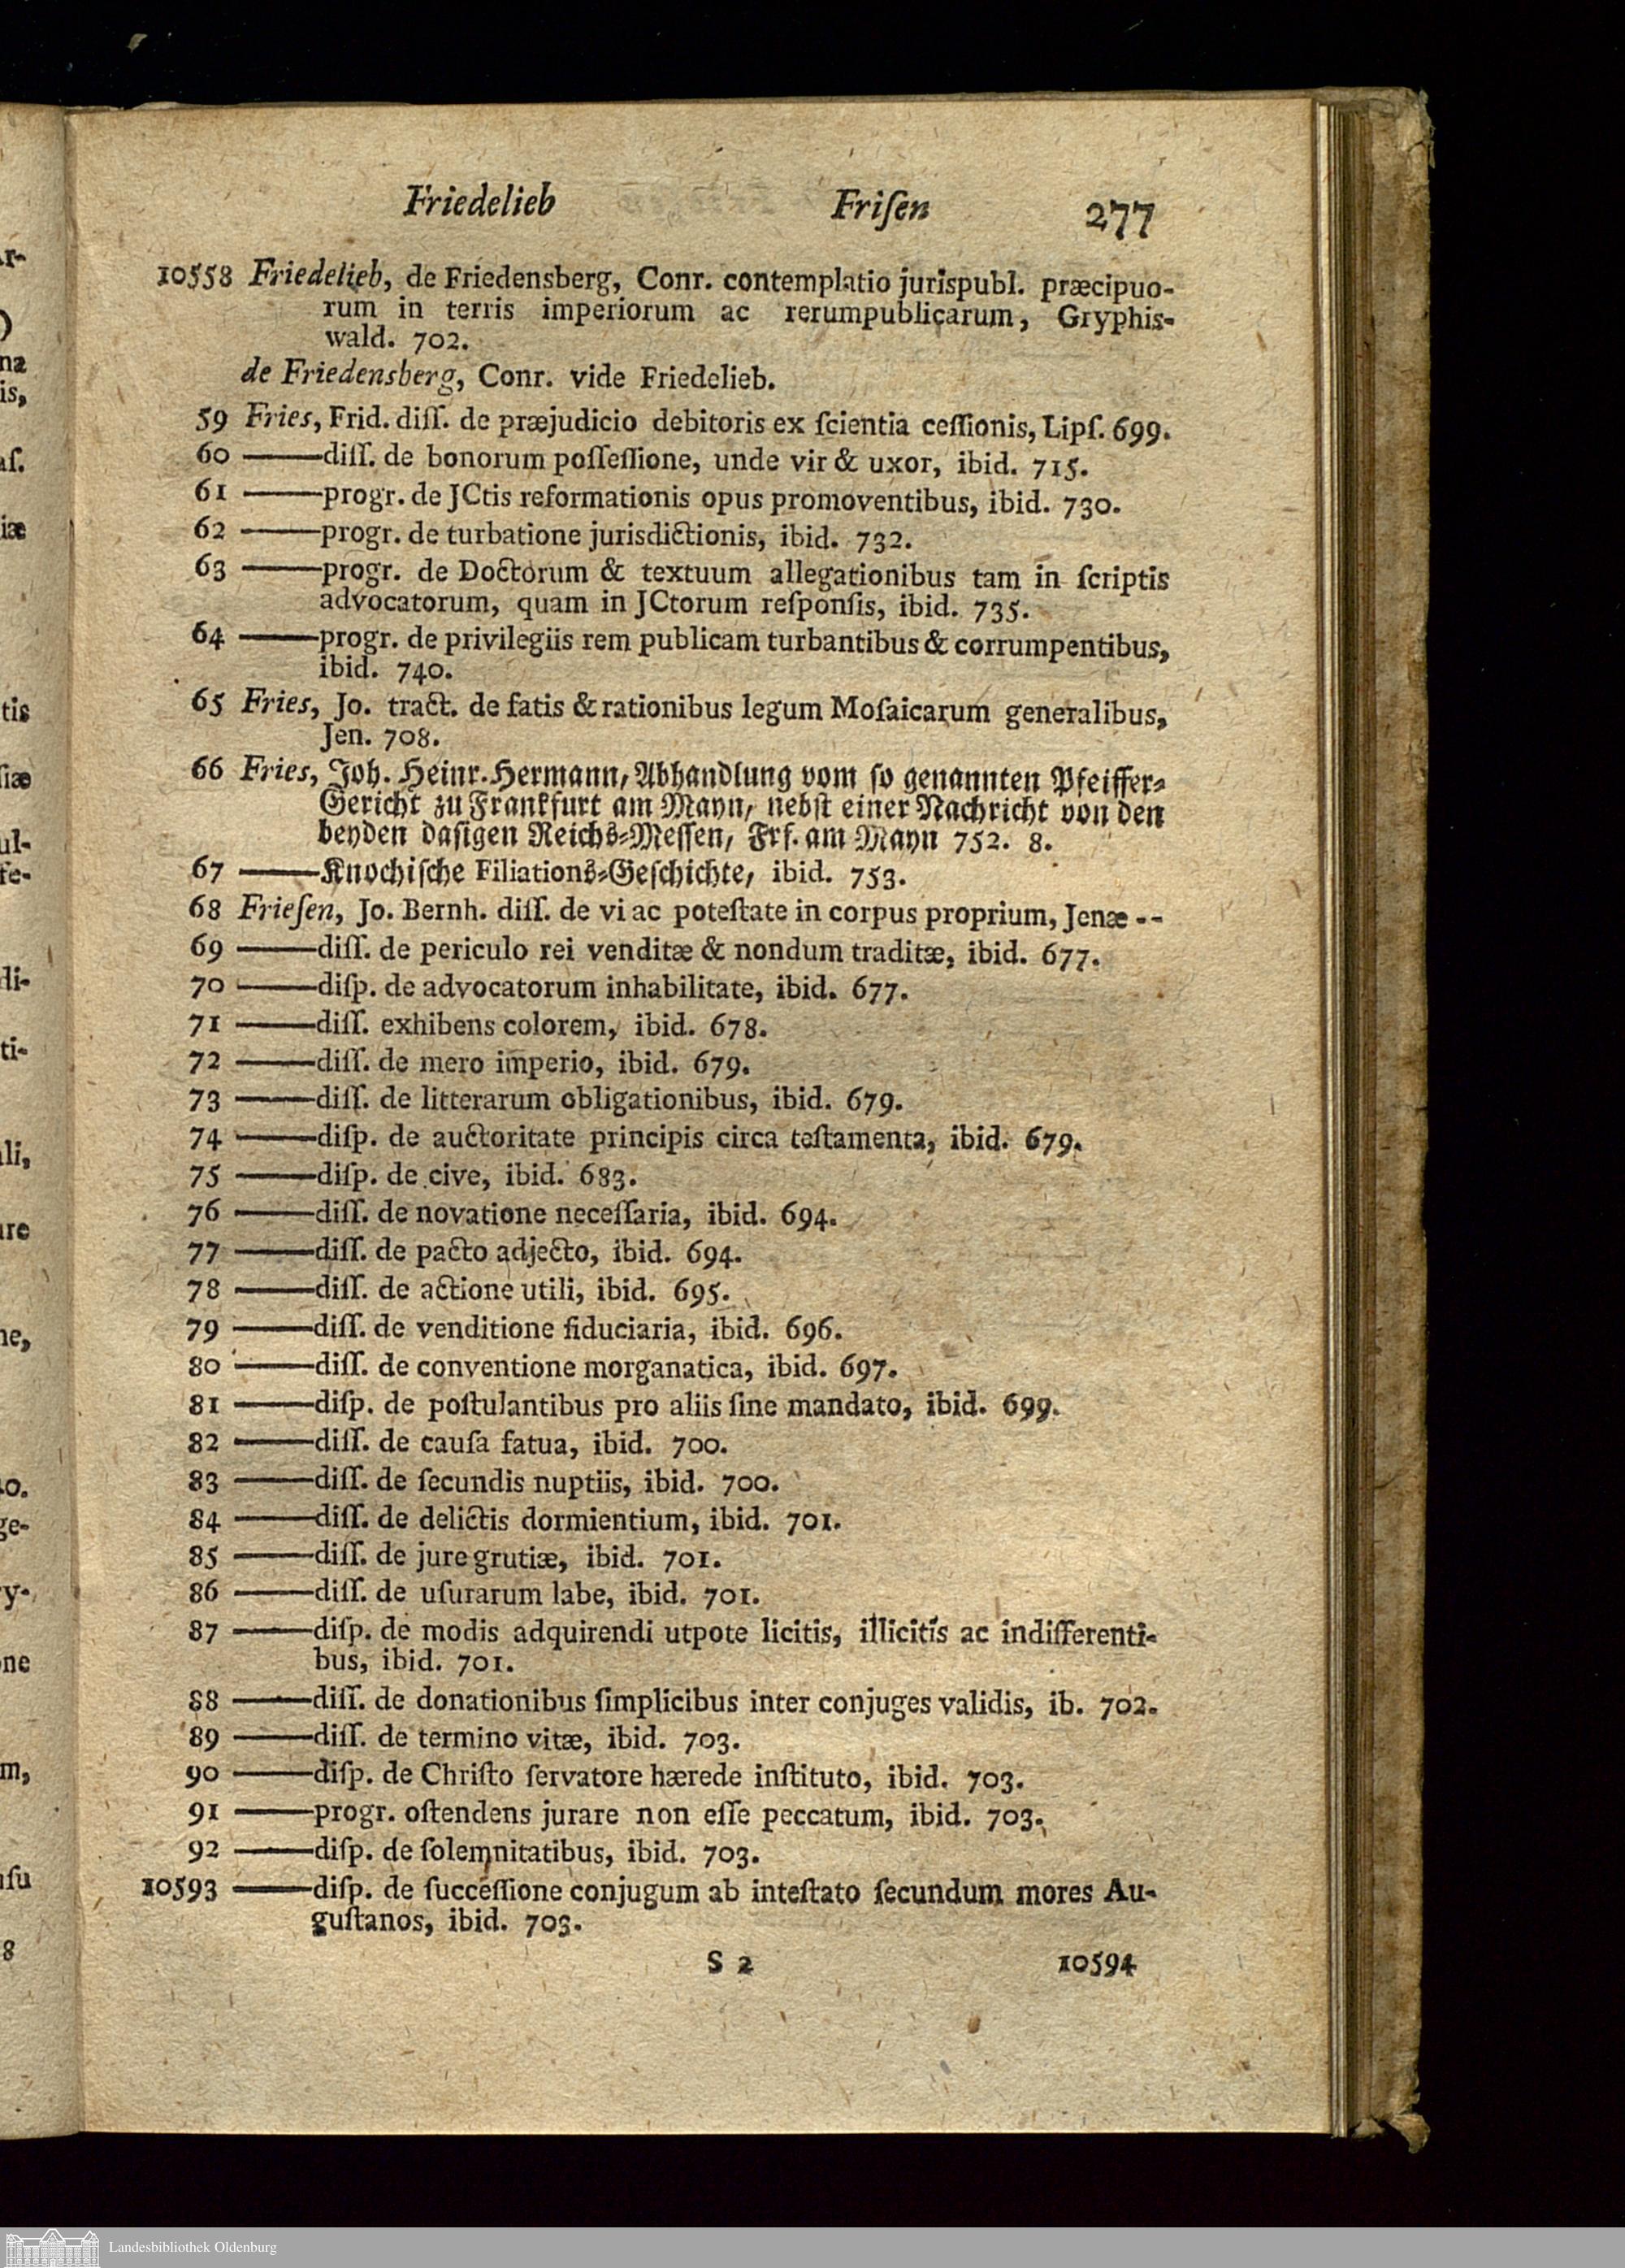 Friedelieb Friſen 277
10558 Friedelieb, de Friedensberg, Conr. contemplatio jurispubl. præcipuo-
rum in terris imperiorum ac rerumpublicarum, Gryphis-
wald. 702.
de Friedensberg, Conr. vide Friedelieb.
59 Fries, Frid. diſſ. de præjudicio debitoris ex ſcientia ceſſionis, Lipſ. 699.
60 —— diſſ. de bonorum poſſeſſione, unde vir & uxor, ibid. 715.
61 —— progr. de JCtis reformationis opus promoventibus, ibid. 730.
62 —— progr. de turbatione jurisdictionis, ibid. 732.
63 —— progr. de Doctorum & textuum allegationibus tam in ſcriptis
advocatorum, quam in JCtorum reſponſis, ibid. 735.
64 —— progr. de privilegiis rem publicam turbantibus & corrumpentibus,
ibid. 740.
65 Fries, Jo. tract. de fatis & rationibus legum Moſaicarum generalibus,
Jen. 708.
66 Fries, Joh. Heinr. Hermann, Abhandlung vom ſo genannten Pfeiffer-
Gericht zu Frankfurt am Mayn, nebſt einer Nachricht von den
beyden daſigen Reichs-Meſſen, Frf. am Mayn 752. 8.
67 —— Knochiſche Filiations-Geſchichte, ibid. 753.
68 Frieſen, Jo. Bernh. diſſ. de vi ac poteſtate in corpus proprium, Jenæ - -
69 —— diſſ. de periculo rei venditæ & nondum traditæ, ibid. 677.
70 —— diſp. de advocatorum inhabilitate, ibid. 677.
71 —— diſſ. exhibens colorem, ibid. 678.
72 —— diſſ. de mero imperio, ibid. 679.
73 —— diſſ. de litterarum obligationibus, ibid. 679.
74 —— diſp. de auctoritate principis circa teſtamenta, ibid. 679.
75 —— diſp. de cive, ibid. 683.
76 —— diſſ. de novatione neceſſaria, ibid. 694.
77 —— diſſ. de pacto adjecto, ibid. 694.
78 —— diſſ. de actione utili, ibid. 695.
79 —— diſſ. de venditione fiduciaria, ibid. 696.
80 —— diſſ. de conventione morganatica, ibid. 697.
81 —— diſp. de poſtulantibus pro aliis ſine mandato, ibid. 699.
82 —— diſſ. de cauſa fatua, ibid. 700.
83 —— diſſ. de ſecundis nuptiis, ibid. 700.
84 —— diſſ. de delictis dormientium, ibid. 701.
85 —— diſſ. de jure grutiæ, ibid. 701.
86 —— diſſ. de uſurarum labe, ibid. 701.
87 —— diſp. de modis adquirendi utpote licitis, illicitis ac indifferenti-
bus, ibid. 701.
88 —— diſſ. de donationibus ſimplicibus inter conjuges validis, ib. 702.
89 —— diſſ. de termino vitæ, ibid. 703.
90 —— diſp. de Chriſto ſervatore hærede inſtituto, ibid. 703.
91 —— progr. oſtendens jurare non eſſe peccatum, ibid. 703.
92 —— diſp. de ſolemnitatibus, ibid. 703.
10593 —— diſp. de ſucceſſione conjugum ab inteſtato ſecundum mores Au-
guſtanos, ibid. 703.
S 2 10594
Landesbibliothek Oldenburg